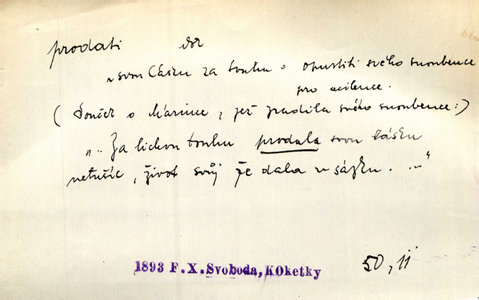 prodati dok
svou lásku za touhu = opustiti svého snoubence
pro milence.
( Součet o Márince, jež zradila svého snoubence:)
„.. Za lichou touhu prodala svou lásku
netušíc, život svůj že dala v sázku. ..."
1893 F.X.Svoboda, KOketky 50, 11